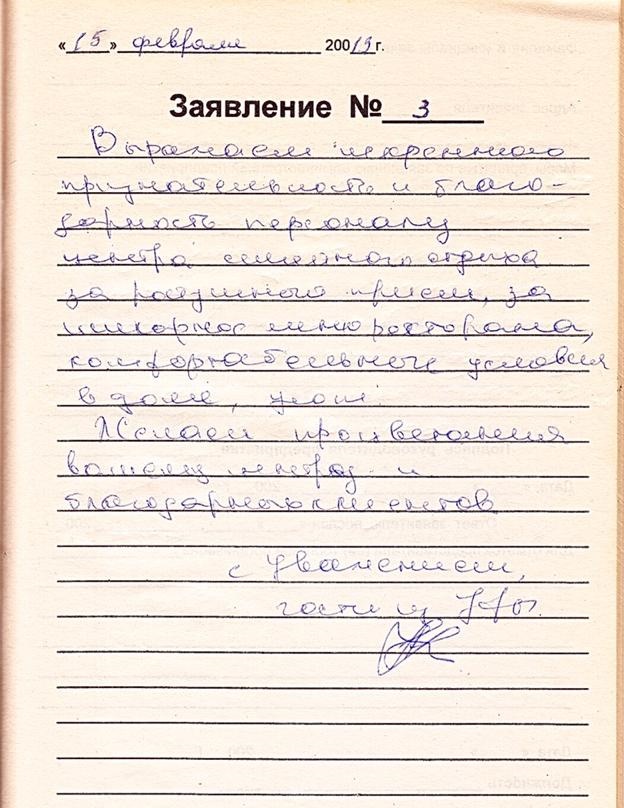 «15» февраля 20013г.
Заявление № 3
Выражаем искреннюю
признательность и благо-
дарность персоналу
центра семейного отдыха
за радушный прием, за
шикарное меню ресторана,
комфортабельные условия
в доме, уют.
Желаем процветания
вашему центру и
благодарных клиентов
с уважением,
гости из